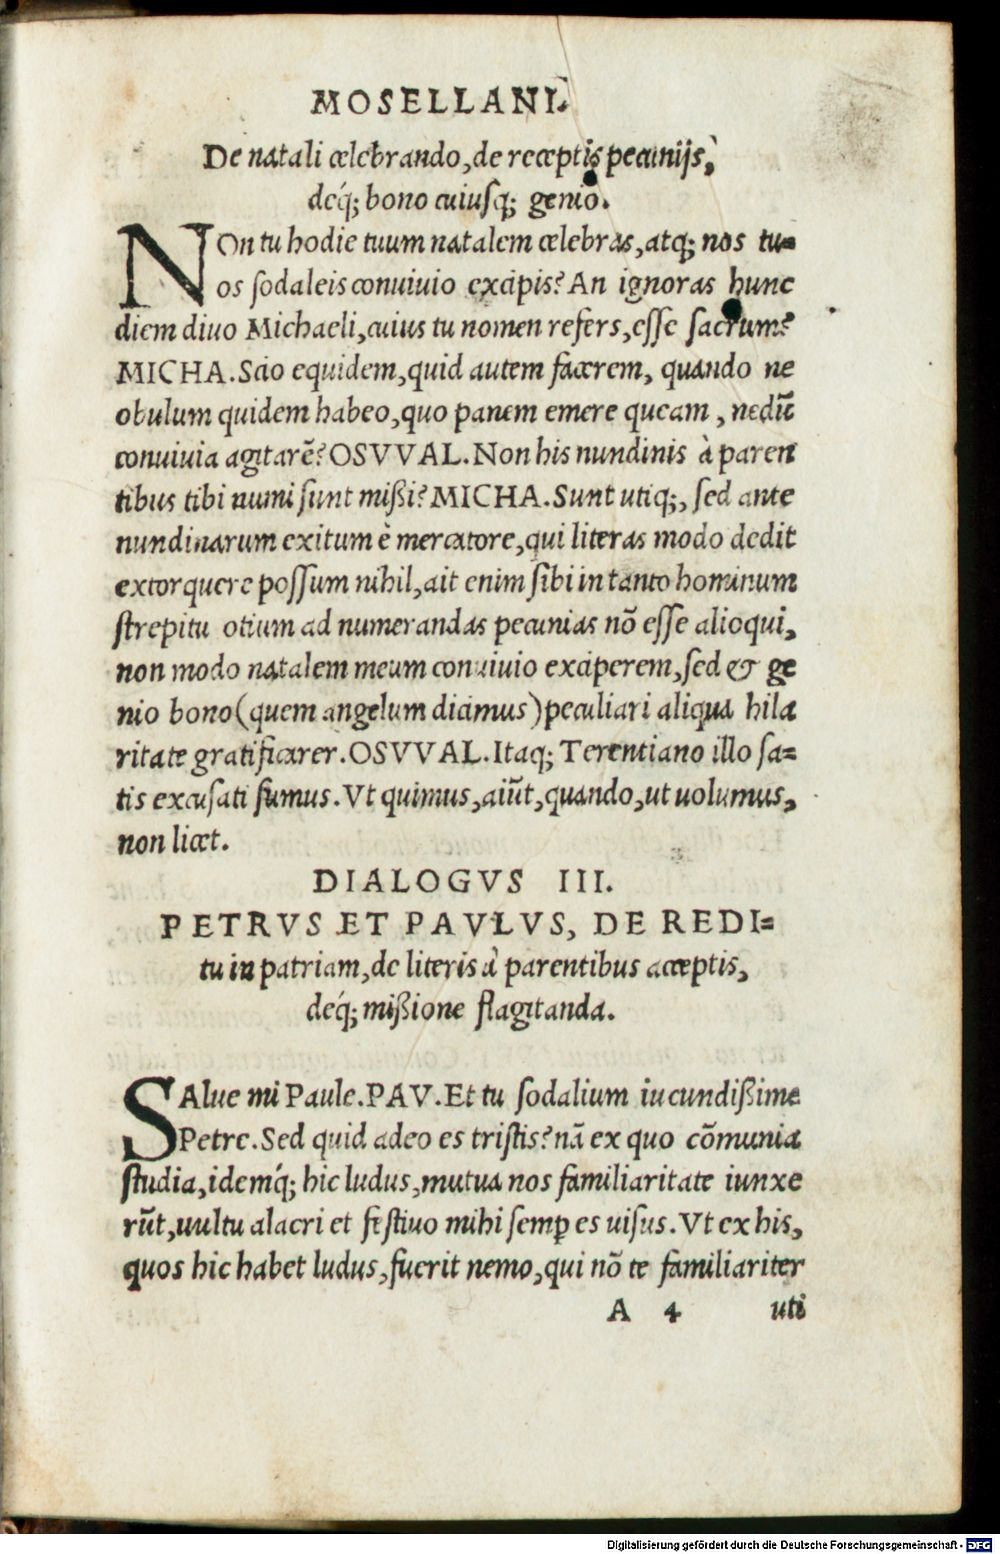 MOSELLANI.
De natali celebrando, de receptis pecunijs,
deq́; bono cuiusq; genio.
NOn tu hodie tuum natalem celebras, atq; nos tu=
os sodaleis conuiuio excipis? An ignoras hunc
diem diuo Michaeli, cuius tu nomen refers, esse sacrum?
MICHA. Scio equidem, quid autem facerem, quando ne
obulum quidem habeo, quo panem emere queam, nedũ
conuiuia agitarẽ? OSVVAL. Non his nundinis à paren
tibus tibi numi sunt mißi? MICHA. Sunt utiq;, sed ante
nundinarum exitum è mercatore, qui literas modo dedit
extorquere possum nihil, ait enim sibi in tanto hominum
strepitu otium ad numerandas pecunias nõ esse alioqui,
non modo natalem meum conuiuio exciperem, sed & ge
nio bono (quem angelum dicimus) peculiari aliqua hila
ritate gratificarer. OSVVAL. Itaq; Terentiano illo sa=
tis excusati sumus. Vt quimus, aiũt, quando, ut uolumus,
non licet.
DIALOGVS III.
PETRVS ET PAVLVS, DE REDI=
tu in patriam, de literis à parentibus acceptis,
deq́; mißione flagitanda.
SAlue mi Paule. PAV. Et tu sodalium iucundißime
Petre. Sed quid adeo es tristis? nã ex quo cõmunia
studia, idemq́; hic ludus, mutua nos familiaritate iunxe
rũt, uultu alacri et festiuo mihi semꝑ es uisus. Vt ex his,
quos hic habet ludus, fuerit nemo, qui nõ te familiariter
A 4 uti
Digitalisierung gefördert durch die Deutsche Forschungsgemeinschaft - DFG